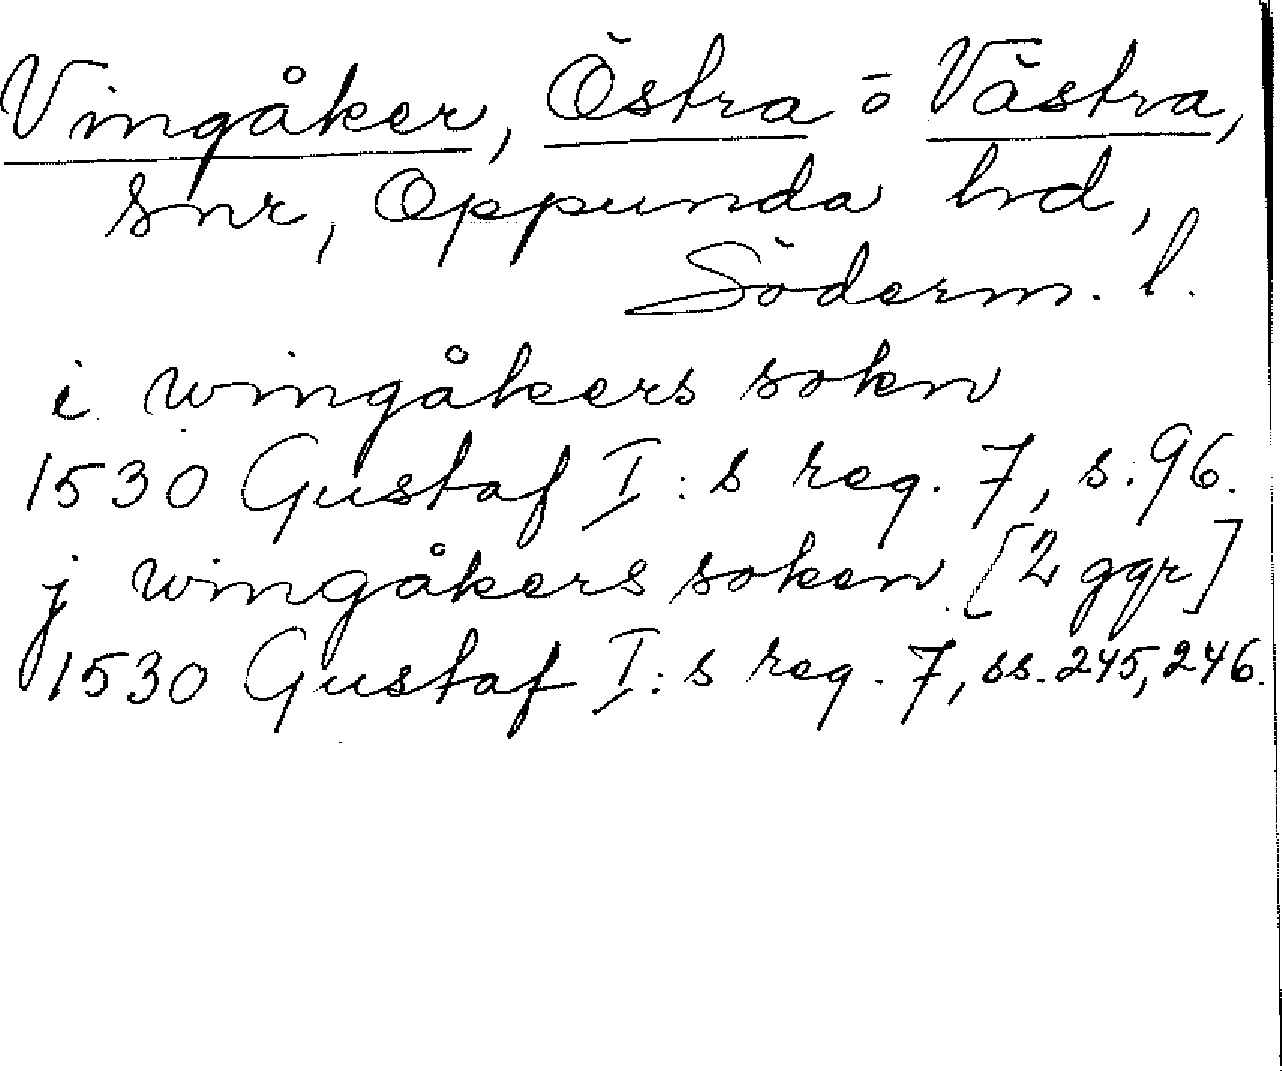 Vingåker, Östra o Västra,
snr, Oppunda hd,
Söderm. l.
i wingåkers sokn
1530 Gustaf I:s reg. 7, s. 96.
j wingåkers soken [2 ggr]
1530 Gustaf I:s reg. 7, ss. 245, 246.